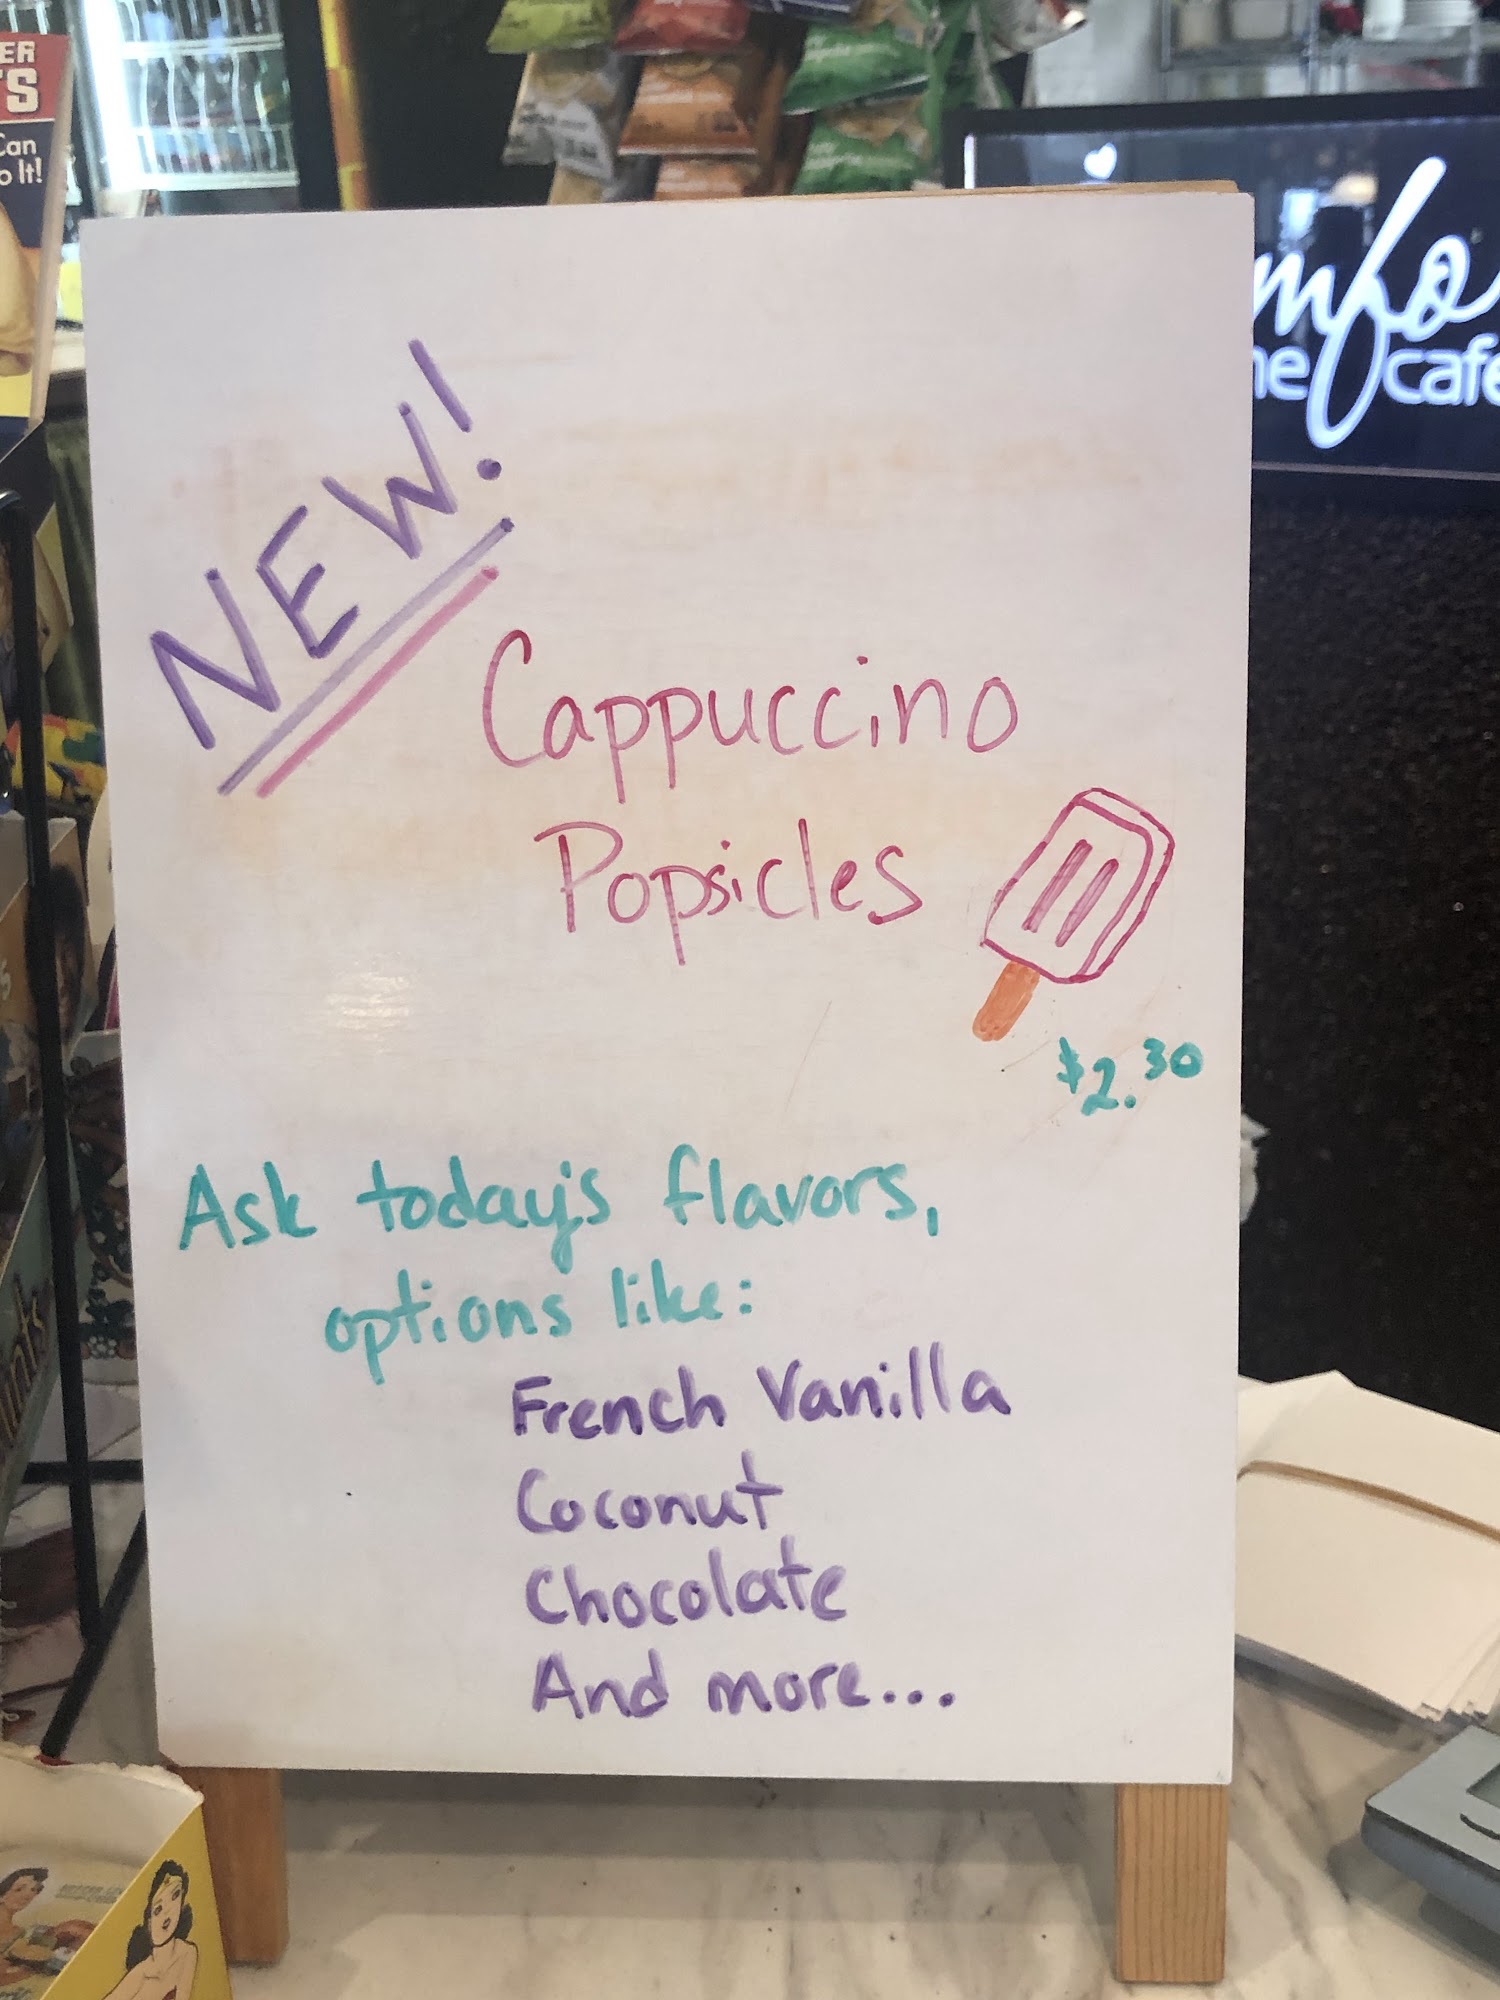 NEW!
Cappuccino
Popsicles
$2.30
Ask today's flavors,
options like:
French Vanilla
Coconut
Chocolate
And more...
ER
TS
Can
o It!
cafe